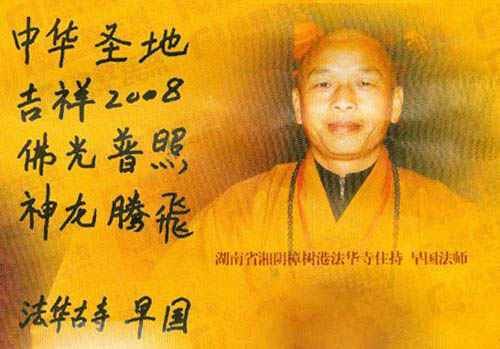 中华圣地
吉祥2008
佛光普照
神龙腾飛
湖南省湘阴樟树港法华寺住持 早国法师
法华古寺 早国